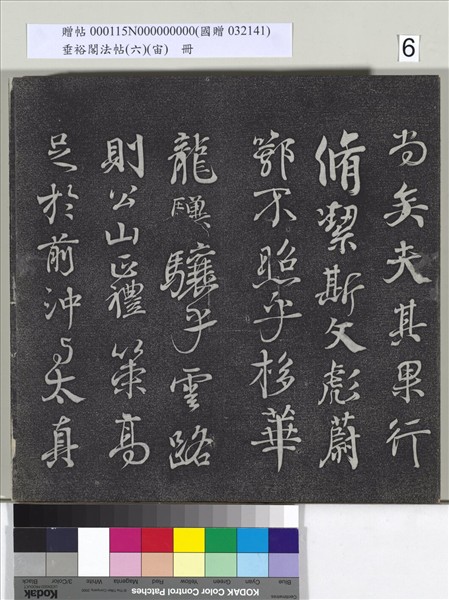 贈帖 000115N000000000(國贈 032141)
垂裕閣法帖(六)(宙) 冊
6
尚矣夫其果行
脩絜斯文彪蔚
鄂不照乎棣華
龍驥驤乎雲路
則公山正禮策高
足於前沖與太真
Blue Cyan Green Yellow Red Magenta White 3/Color Black
KODAK Color Control Patches
Kodak